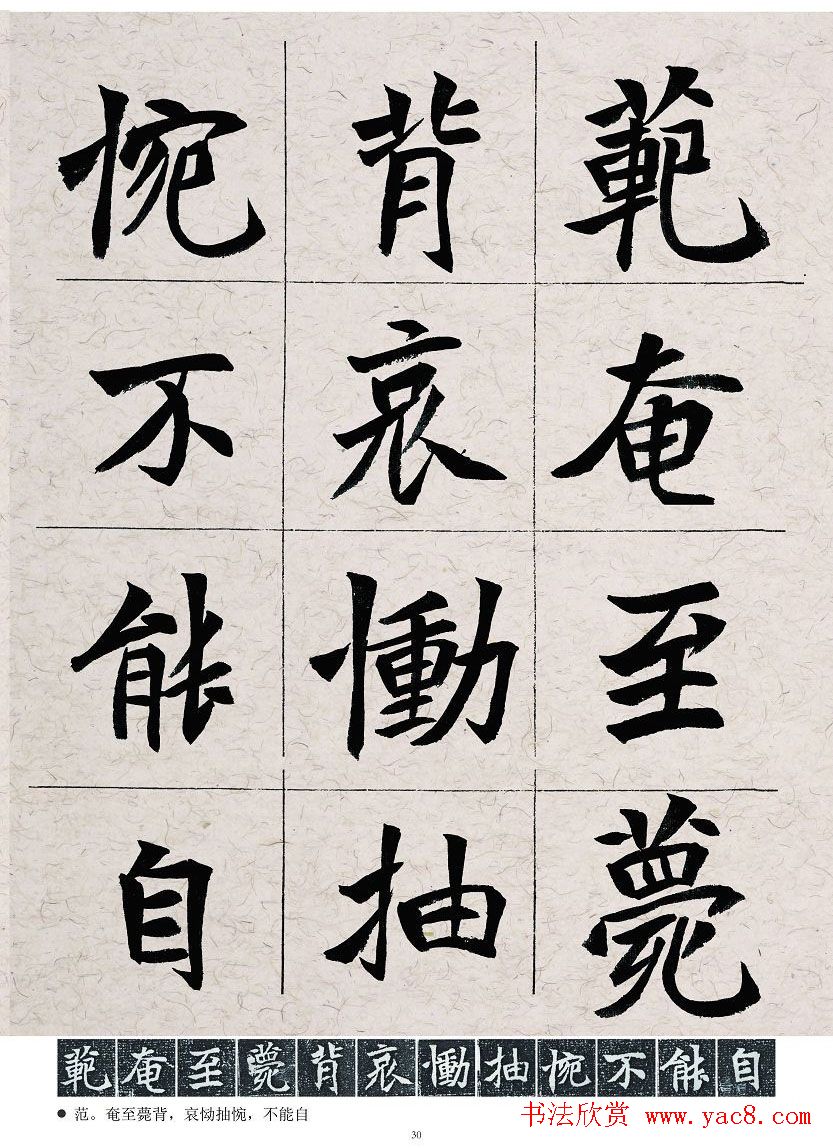 範奄至薨
背哀慟抽
惋不能自
範奄至薨背哀慟抽惋不能自
● 范。奄至薨背，哀恸抽惋，不能自
书法欣赏 www.yac8.com
30